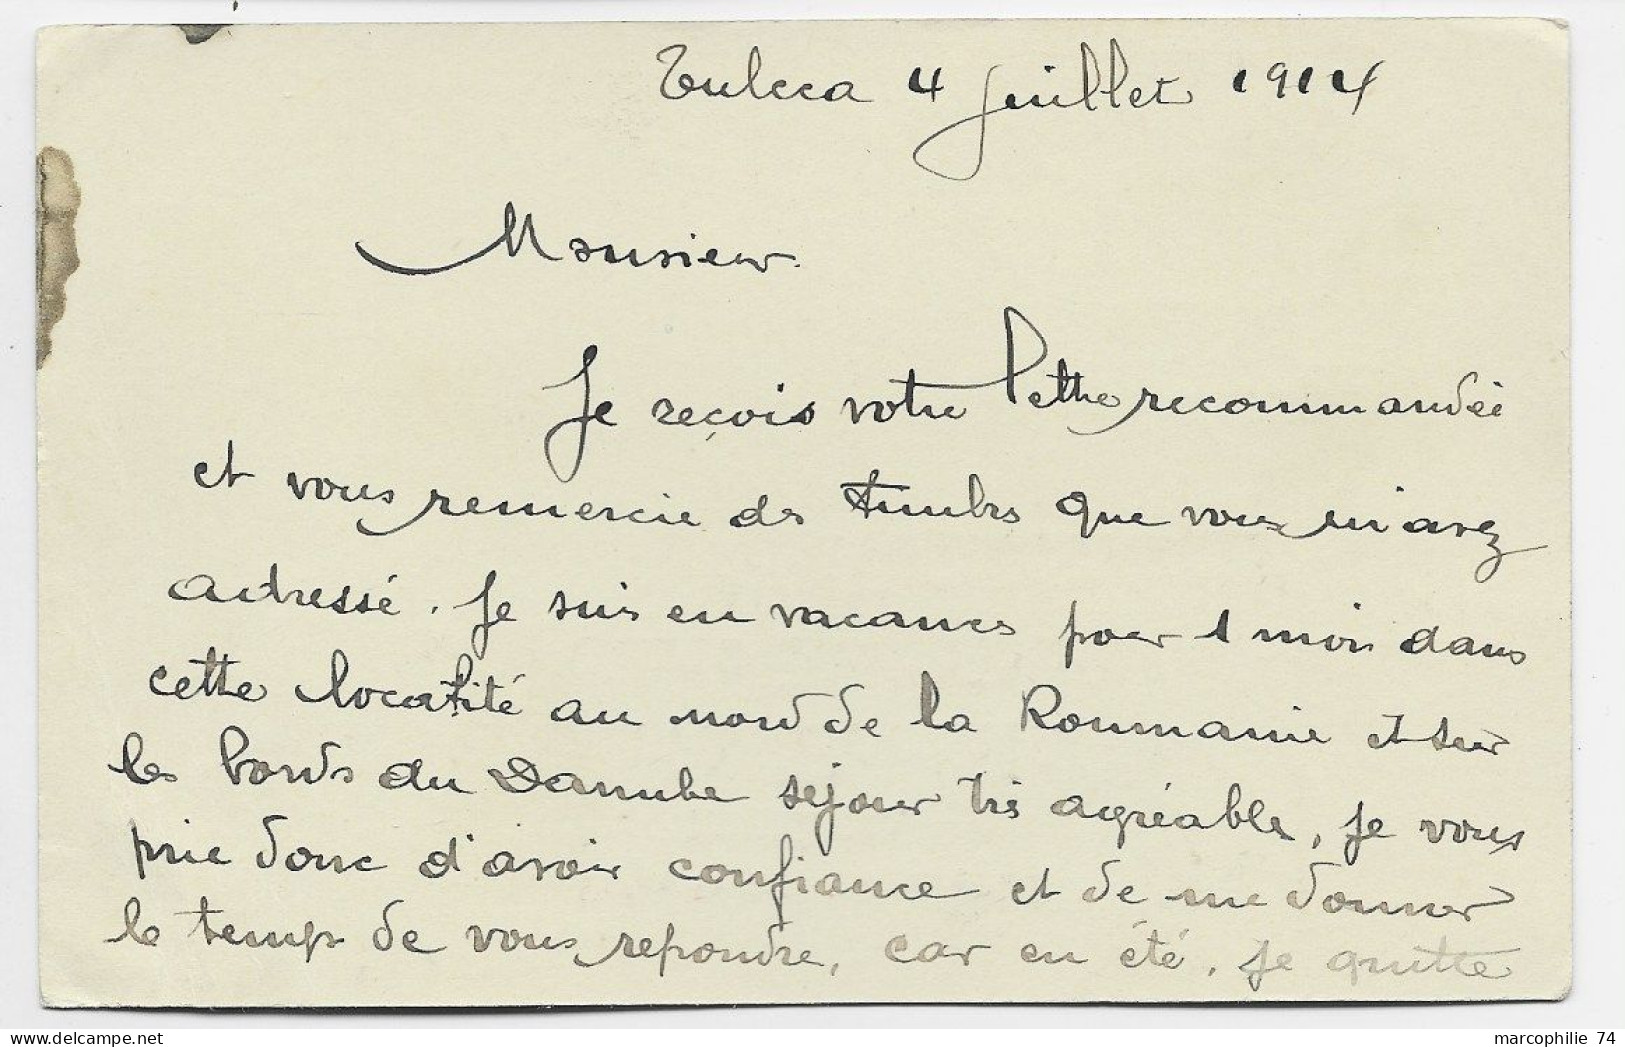 Tulcea 4 juillet 1914
Monsieur
Je reçois votre lettre recommandée
et vous remercie des timbres que vous m'avez
adressé. Je suis en vacances pour 1 mois dans
cette localité au nord de la Roumanie et sur
les bords du Danube séjour très agréable, je vous
prie donc d'avoir confiance et de me donner
le temps de vous repondre, car en été, je quitte
marcophilie 74